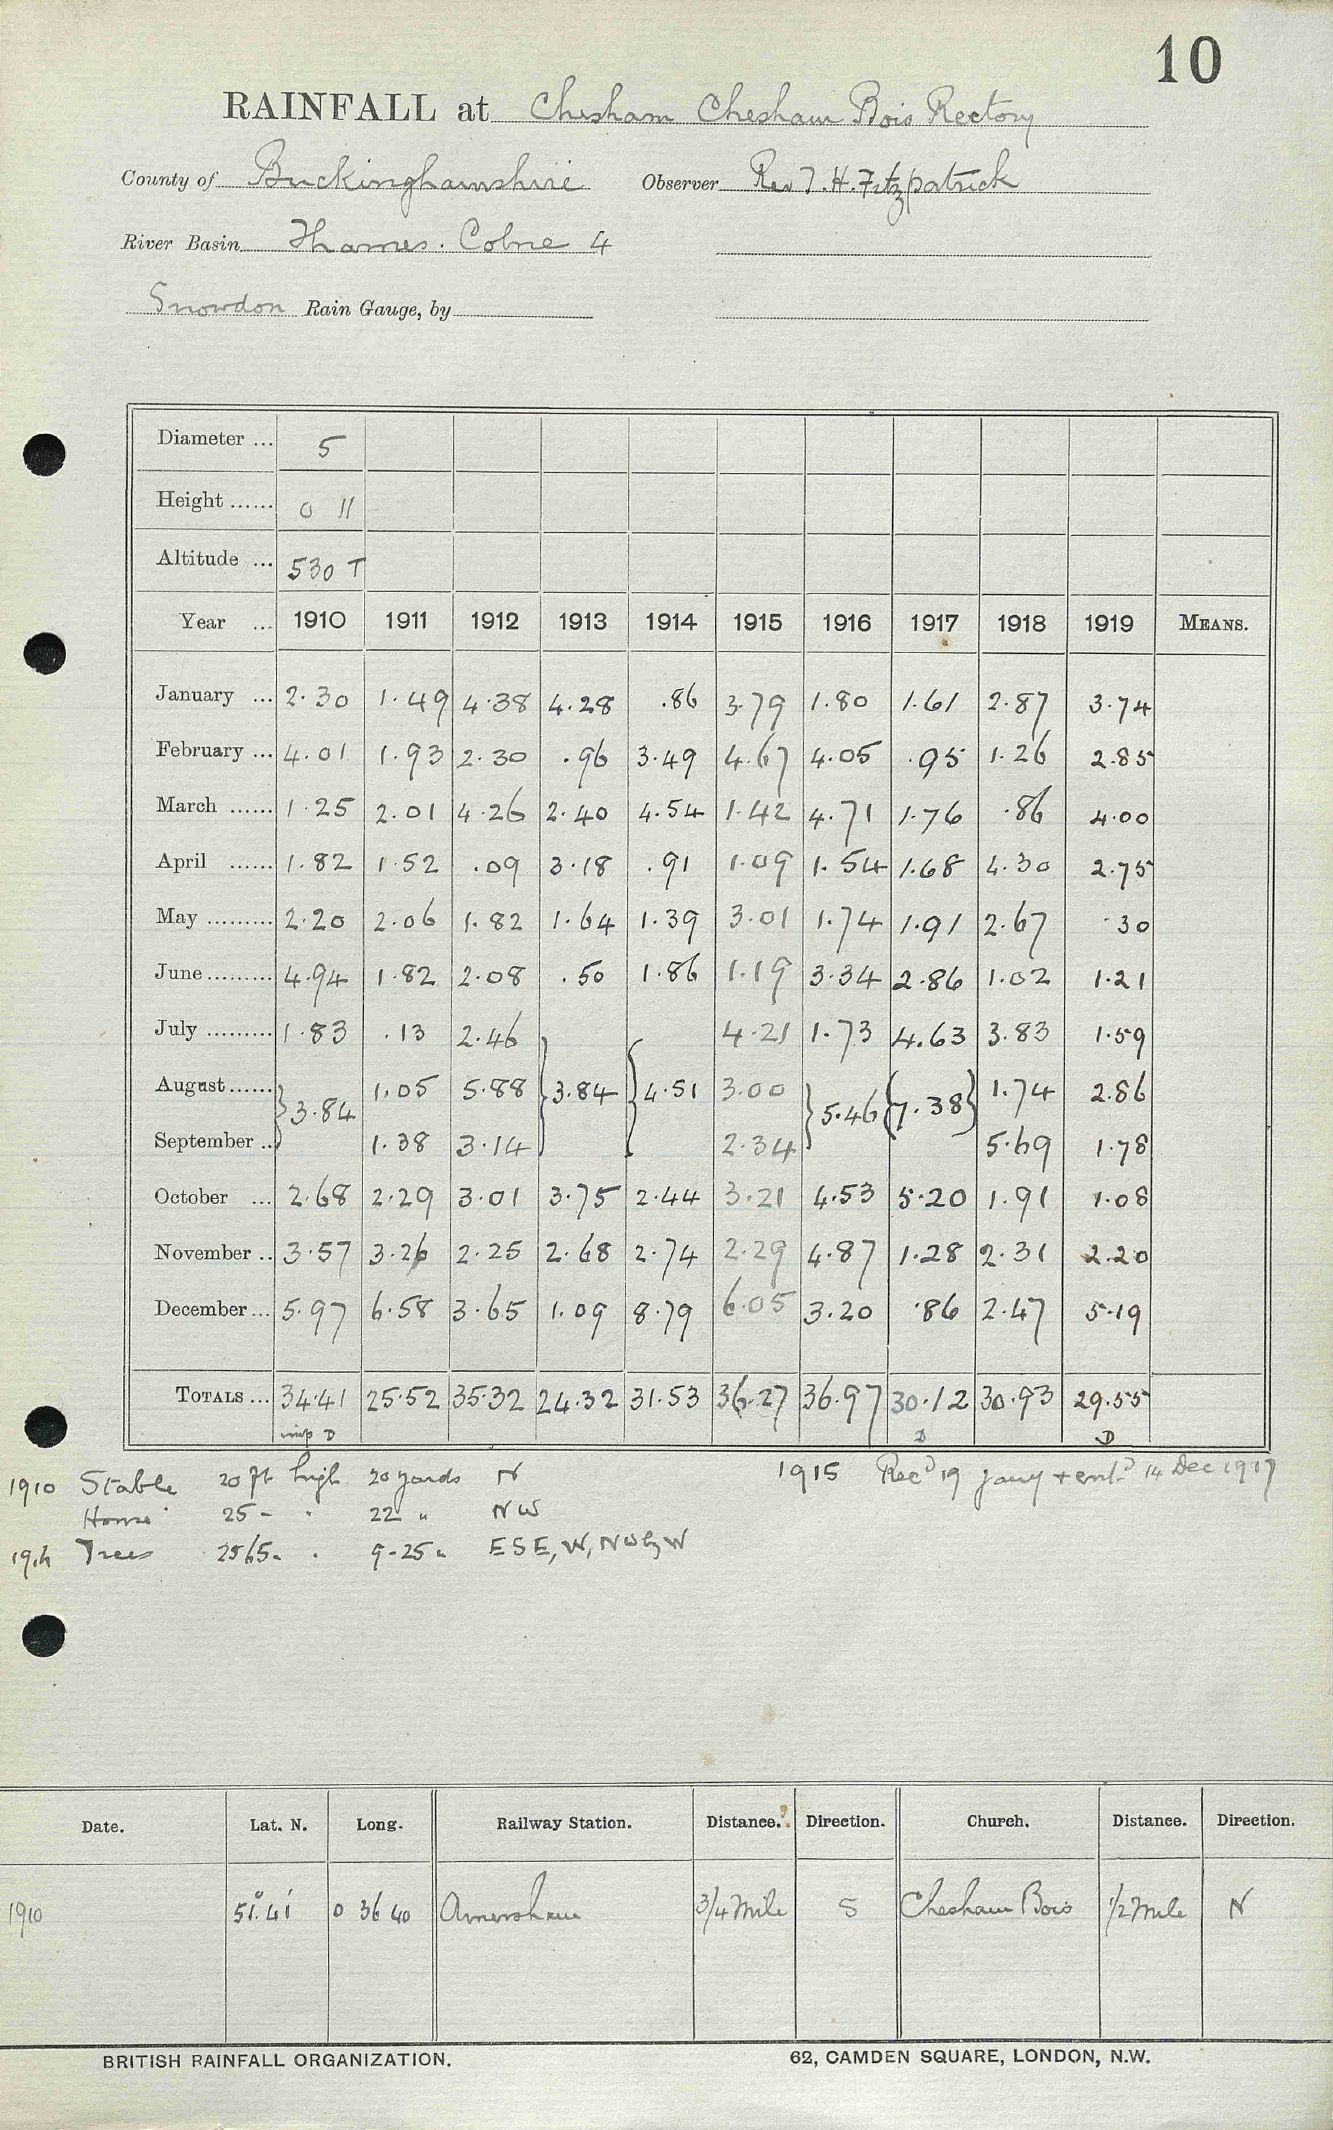 10
RAINFALL at Chesham Chesham Bois Rectory
County of Buckinghamshire Observer Rev T. H. Fitzpatrick
River Basin Thames. Colne 4
Snowdon Rain Gauge, by
Diameter ... 5
Height ...... 0 11
Altitude ... 530 T
Year ... 1910 1911 1912 1913 1914 1915 1916 1917 1918 1919 MEANS.
January ... 2.30 1.49 4.38 4.28 .86 3.79 1.80 1.61 2.87 3.74
February ... 4.01 1.93 2.30 .96 3.49 4.67 4.05 .95 1.26 2.85
March ...... 1.25 2.01 4.26 2.40 4.54 1.42 4.71 1.76 .86 4.00
April ...... 1.82 1.52 .09 3.18 .91 1.09 1.54 1.68 4.30 2.75
May ......... 2.20 2.06 1.82 1.64 1.39 3.01 1.74 1.91 2.67 .30
June ......... 4.94 1.82 2.08 .50 1.86 1.19 3.34 2.86 1.02 1.21
July ......... 1.83 .13 2.46 4.21 1.73 4.63 3.83 1.59
August ...... } 3.84 1.05 5.88 } 3.84 { 4.51 3.00 } 5.46 { 7.38 } 1.74 2.86
September .. 1.38 3.14 2.34 5.69 1.78
October ... 2.68 2.29 3.01 3.75 2.44 3.21 4.53 5.20 1.91 1.08
November .. 3.57 3.26 2.25 2.68 2.74 2.29 4.87 1.28 2.31 2.20
December ... 5.97 6.58 3.65 1.09 8.79 6.05 3.20 .86 2.47 5.19
TOTALS ... 34.41 25.52 35.32 24.32 31.53 36.27 36.97 30.12 30.93 29.55
imp D D D
1910 Stable 20 ft high 20 yards N 1915 Rec'd 19 Jany + ent'd 14 Dec 1917
House 25 - " 22 " NW
Trees 25 65 " " 9-25 " ESE, W, NW by W
Date. Lat. N. Long. Railway Station. Distance. Direction. Church. Distance. Direction.
1910 51° 41' 0 36 40 Amersham 3/4 Mile S Chesham Bois 1/2 Mile N
BRITISH RAINFALL ORGANIZATION. 62, CAMDEN SQUARE, LONDON, N.W.